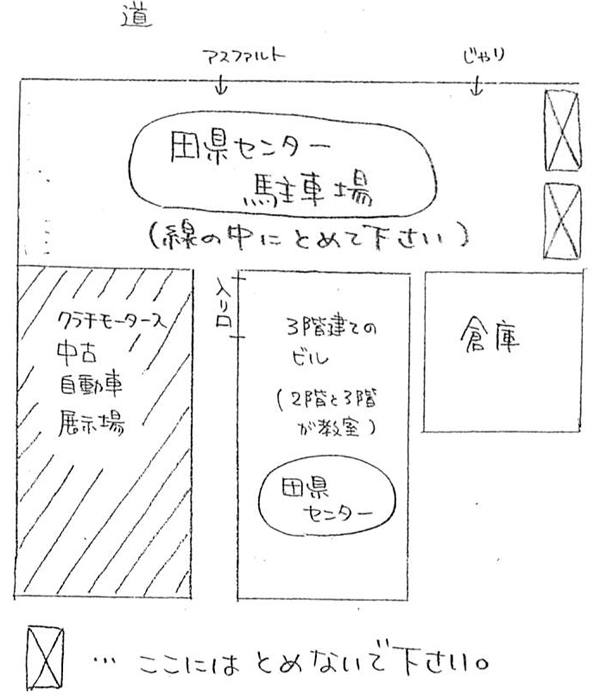 道
アスファルト
じゃり
田県センター
駐車場
(線の中にとめて下さい)
クラチモータース
中古
自動車
展示場
入り口
3階建ての
ビル
(2階と3階
が教室)
田県
センター
倉庫
… ここにはとめないで下さい。